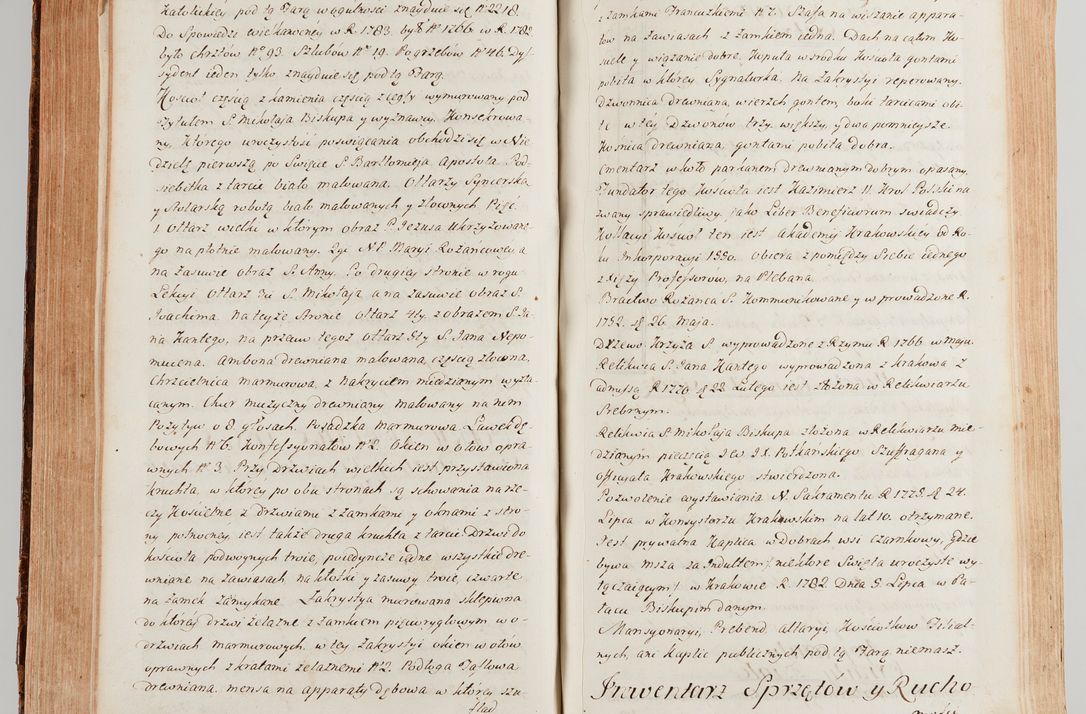 Katolickiey pod tą Parą w ogulności znayduie się No 2218.
Do Spowiedzi wielkanocney w R. 1783. było No 1266. w R. 1782
było chrztów No 93. Szlubow No 19. Pogrzebów No 46. Dys-
sydent ieden tylko znayduie się pod tą Parą.
Kościoł częscią z kamienia częscią z cegły wymurowany pod
tytułem S. Mikołaja Biskupa y wyznawcy, Konsekrowa-
ny, Którego uroczystość poswięcania obchodzi się w Nie-
dzielę pierwszą po Swięcie S. Bartłomieja Apostoła. Pod-
siebitka z tarcic biało malowana. Ołtarzy Synicerską
y Stolarską robotą biało malowanych y złoconych Pięć.
1. Ołtarz wielki w którym obraz P. Jezusa Ukrzyżowane-
go na płótnie malowany. 2gi N. P. Maryi Rożańcowey, a
na zasuwie obraz S. Anny. Po drugiey stronie w rogu
Lekcyi Ołtarz 3ci S. Mikołaja a na zasuwie obraz S.
Joachima. Na teyże stronie ołtarz 4ty z obrazem S. Ja-
na Kantego, na przeciw tegoż ołtarz 5ty S. Jana Nepo-
mucena. Ambona drewniana malowana, częscią złocona,
Chrzcielnica marmurowa z nakryciem miedzianym wyzła-
canym. Chor muzyczny drewniany malowany na nem
Pozytyw o 8. głosach. Posadzka marmurowa. Ławek dę-
bowych No 6. Konfessyonałów No 2. Okien w ołow opra-
wnych No 3. Przy drzwiach wielkich iest przystawiona
kruchta, w którey po obu stronach są schowania na rze-
czy Kościelne z drzwiami z zamkami y oknami z stro-
ny połnocney iest także druga kruchta z tarcic Drzwi do
kościoła podwoynych troie, poiedyncze iedne wszystkie dre-
wniane na zawiasach na kłotki y zasuwy troie, czwarte
na zamek zamykane. Zakrystya murowana sklepiona
do którey drzwi żelazne z zamkiem pięciuryglowym w o-
drzwiach marmurowych. w tey Zakrystyi okien w ołów
oprawnych z kratami żelaznemi No 2. Podłoga
drewniana. mensa na apparaty dębowa w którey szu-
flad
z zamkami Francuzkiemi No 7. Szafa na wieszanie appara-
tow na zawiasach z zamkiem iedna. Dach na całym Ko-
sciele y wiązanie dobre. Kopuła w środku kościoła gontami
pobita w którey Sygnaturka. Na Zakrystyi reperowany.
Dzwonnica drewniana, wierzch gontem, boki tarcicami obi-
te w tey Dzwonów trzy, większy, y dwa pomnieysze.
Kośnica drewniana, gontami pobita dobra.
Cmentarz w koło parkanem drewnianym dobrym opasany.
Fundator tego Kościoła iest Kazimierz II. Krol Polski na-
zwany sprawiedliwy, jako Liber Beneficiorum swiadczy
Kollacyi Kościoł ten iest Akademij Krakowskiey od Ro-
ku Inkorporacyi 1550. obiera z pomiędzy Siebie iednego
z Xięży Profesorów, na Plebana.
Bractwo Rożańca S. Kommunikowane y wprowadzone R.
1752. d. 26. Maja.
Drzewo Krzyża S. wyprowadzone z Rzymu R. 1766 w Maju.
Relikwia S. Jana Kantego wyprowadzona z Krakowa z
admissą R. 1776 d. 22 Lutego iest złożona w Relikwiarku
Srebrnym.
Relikwia S. Mikołaja Biskupa złożona w Relikwiarzu mie-
dzianym pieczęcią J. W. J. X. Potkańskiego Szuffragana y
officyała Krakowskiego stwierdzona.
Pozwolenie wystawiania N. Sakramentu R. 1775. d. 24.
Lipca w Konsystorzu Krakowskim na lat 10. otrzymane.
Jest prywatna Kaplica w dobrach wsi Czarnkowy, gdzie
bywa msza za Indultem, niektóre Swięta uroczyste wy-
łączaiącym, w Krakowie R. 1782 Dnia 5 Lipca w Pa-
łacu Biskupim danym.
Mansyonaryi, Prebend, altaryi, Kościołków Filial-
nych, ani Kaplic publicznych pod tą Parą niemasz.
Inwentarz Sprzętow y Rucho